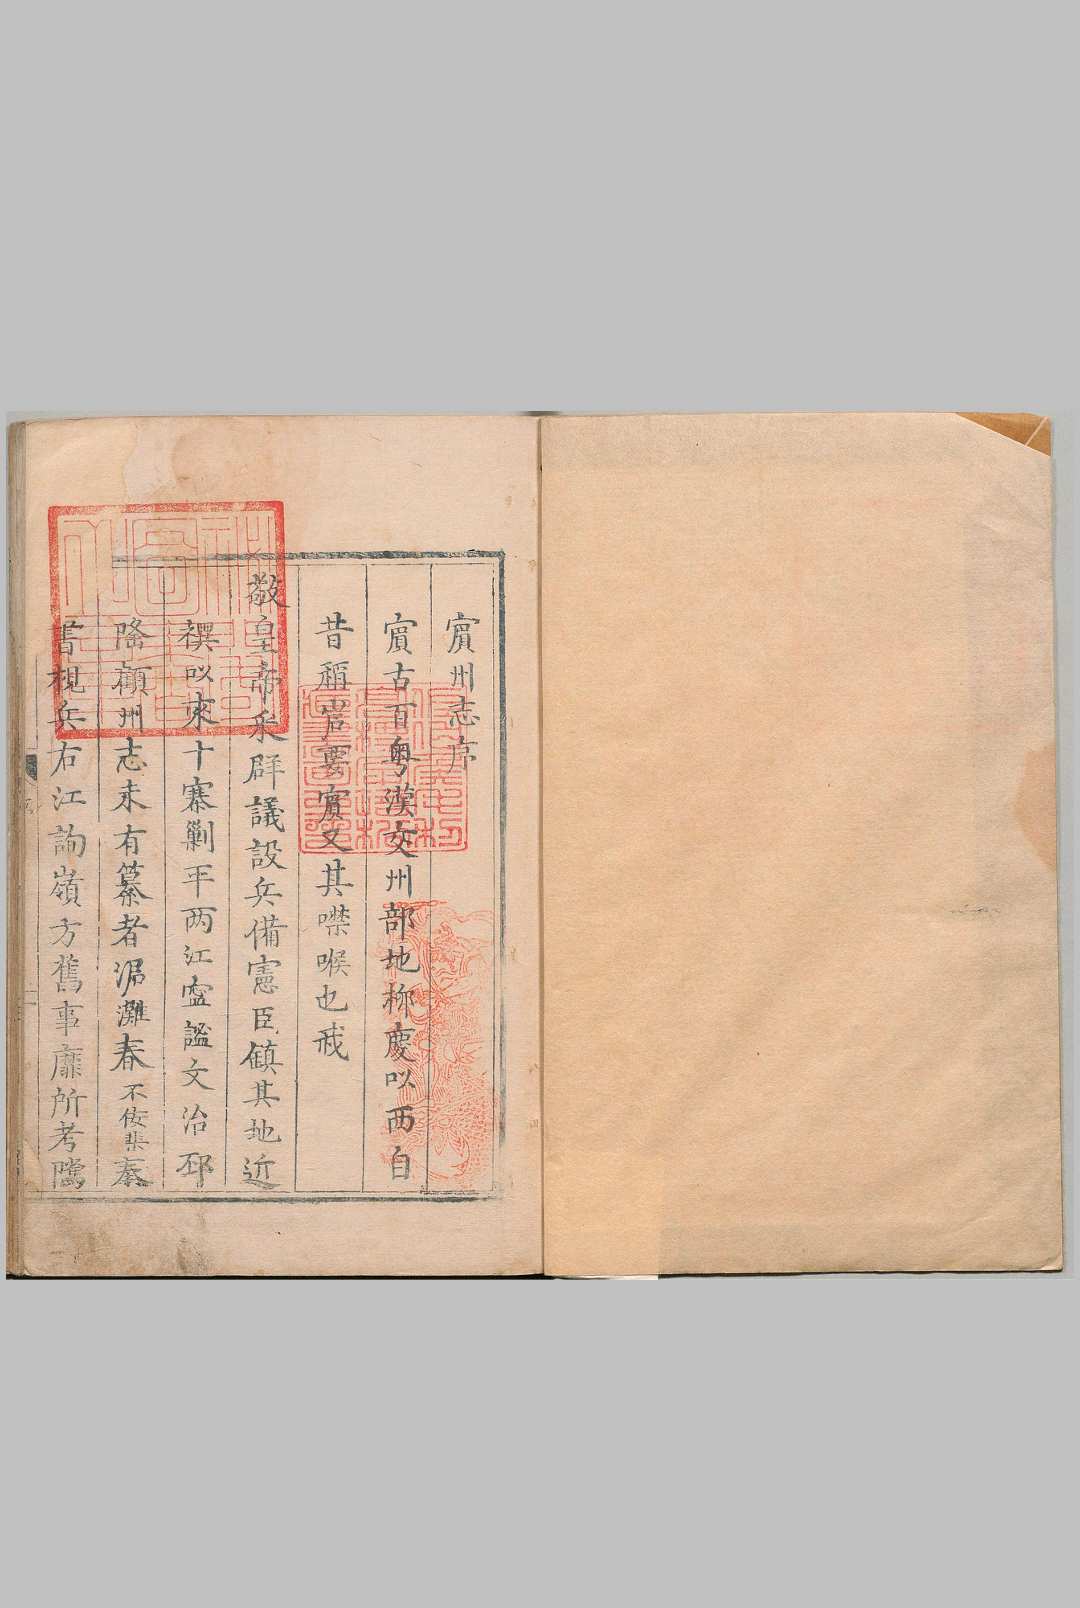 賓州志序
賓古百粵漢交州部地柳慶以西自
昔稱岩要賓又其噤喉也我
敬皇帝采群議設兵備憲臣鎮其地近
禩以來十寨剿平两江寍謐文治邳
隆顧州志未有纂者涒灘春不佞棐奉
書視兵右江詢嶺方舊事靡所考隲